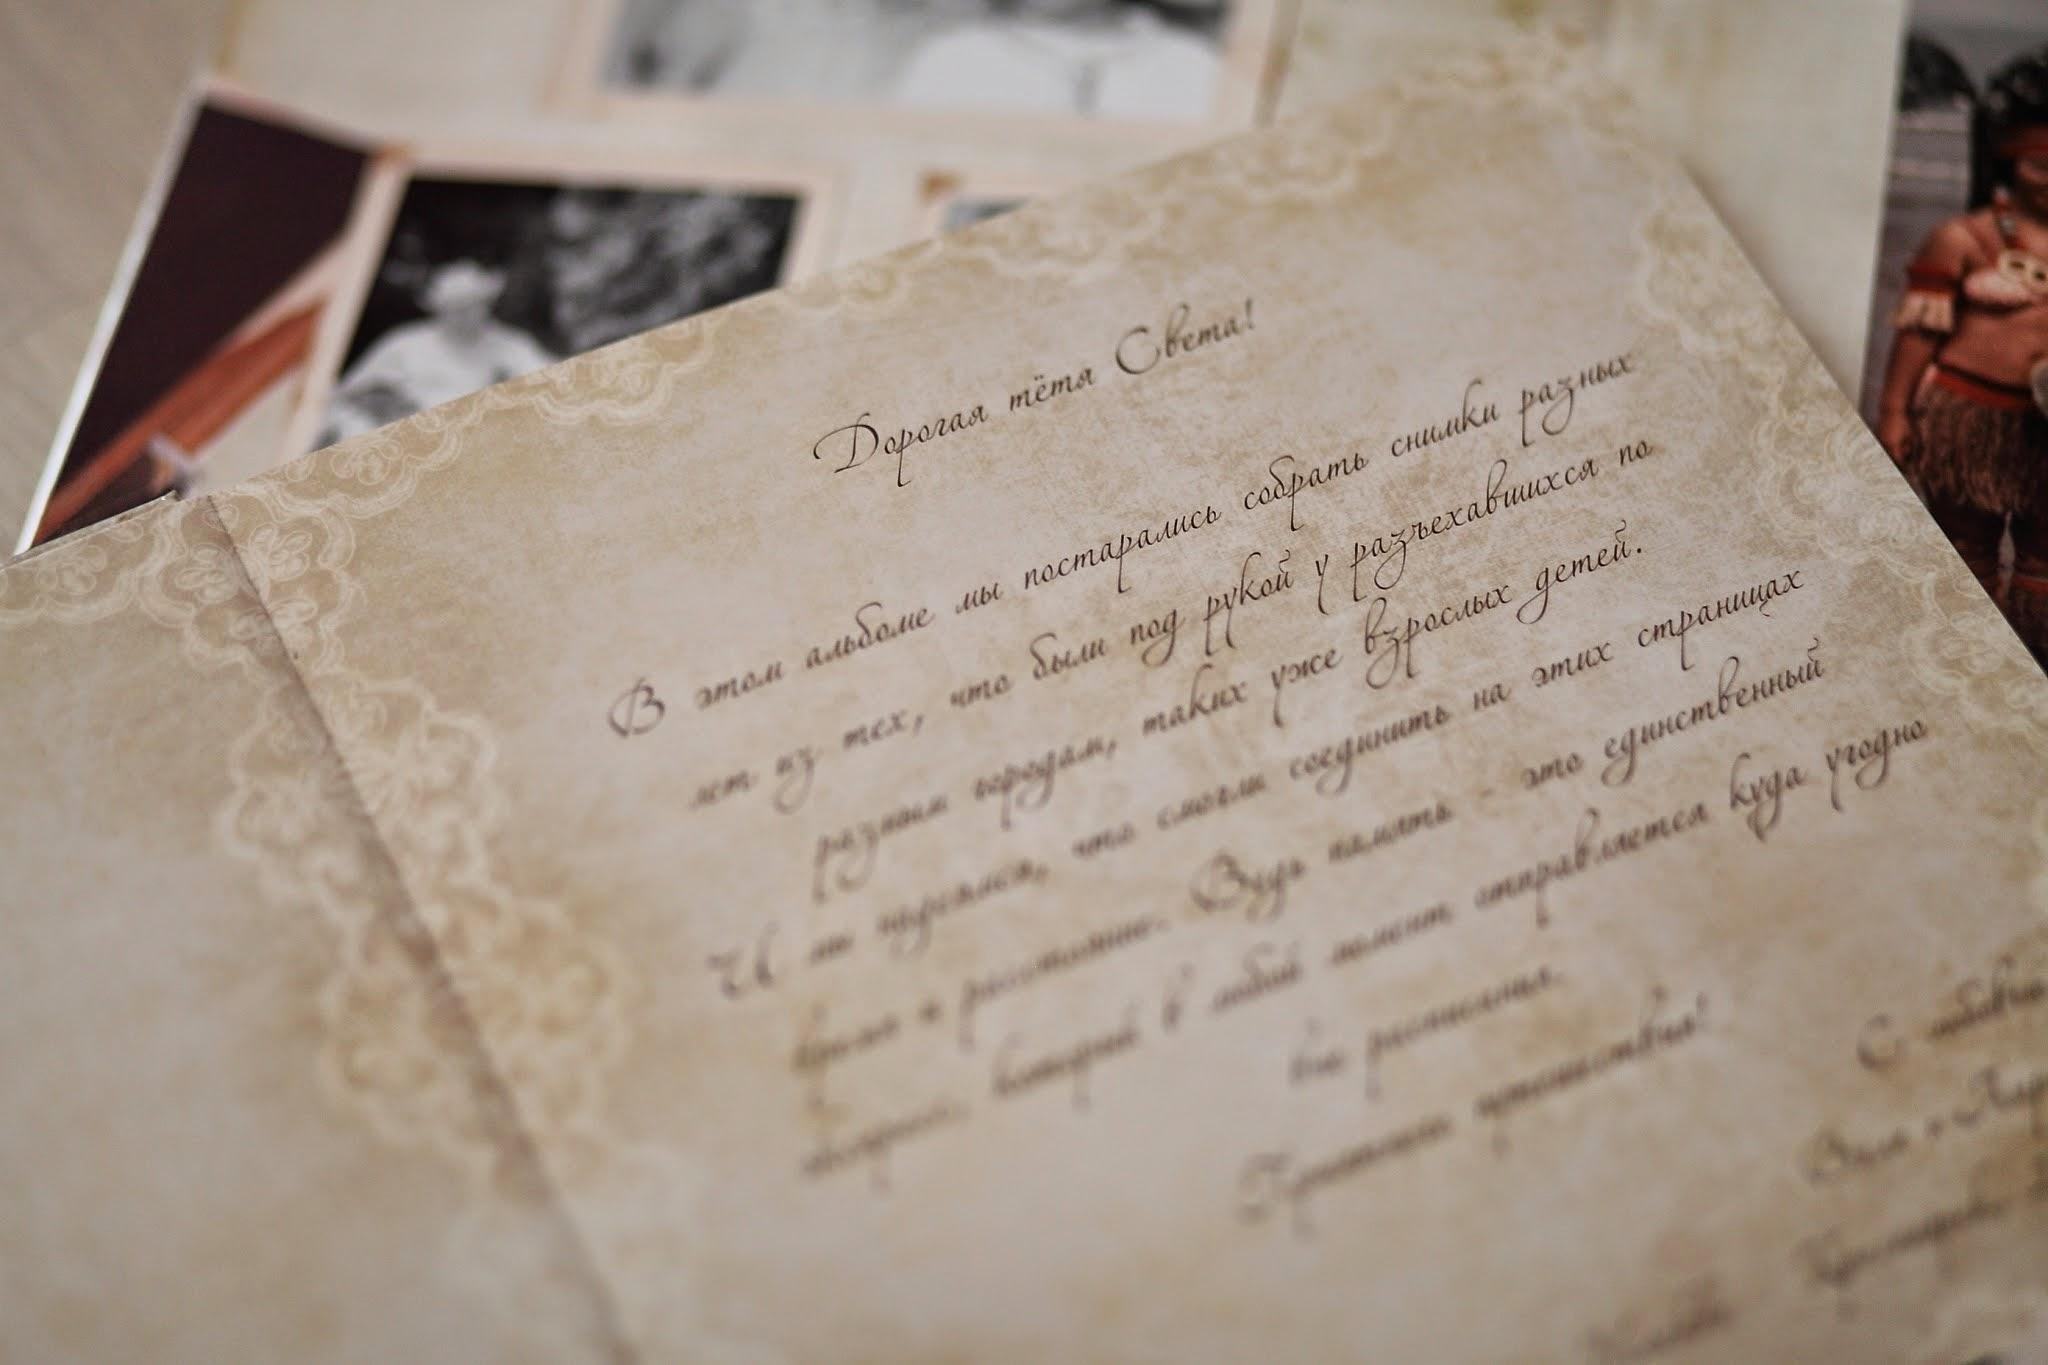 Дорогая тётя Света!
В этом альбоме мы постарались собрать снимки разных
лет из тех, что были под рукой у разъехавшихся по
разным городам, таких уже взрослых детей.
И мы надеемся, что смогли соединить на этих страницах
время и расстояние. Ведь память - это единственный
экспресс, который в любой момент отправляется куда угодно
вне расписания.
Приятного путешествия!
С любовью